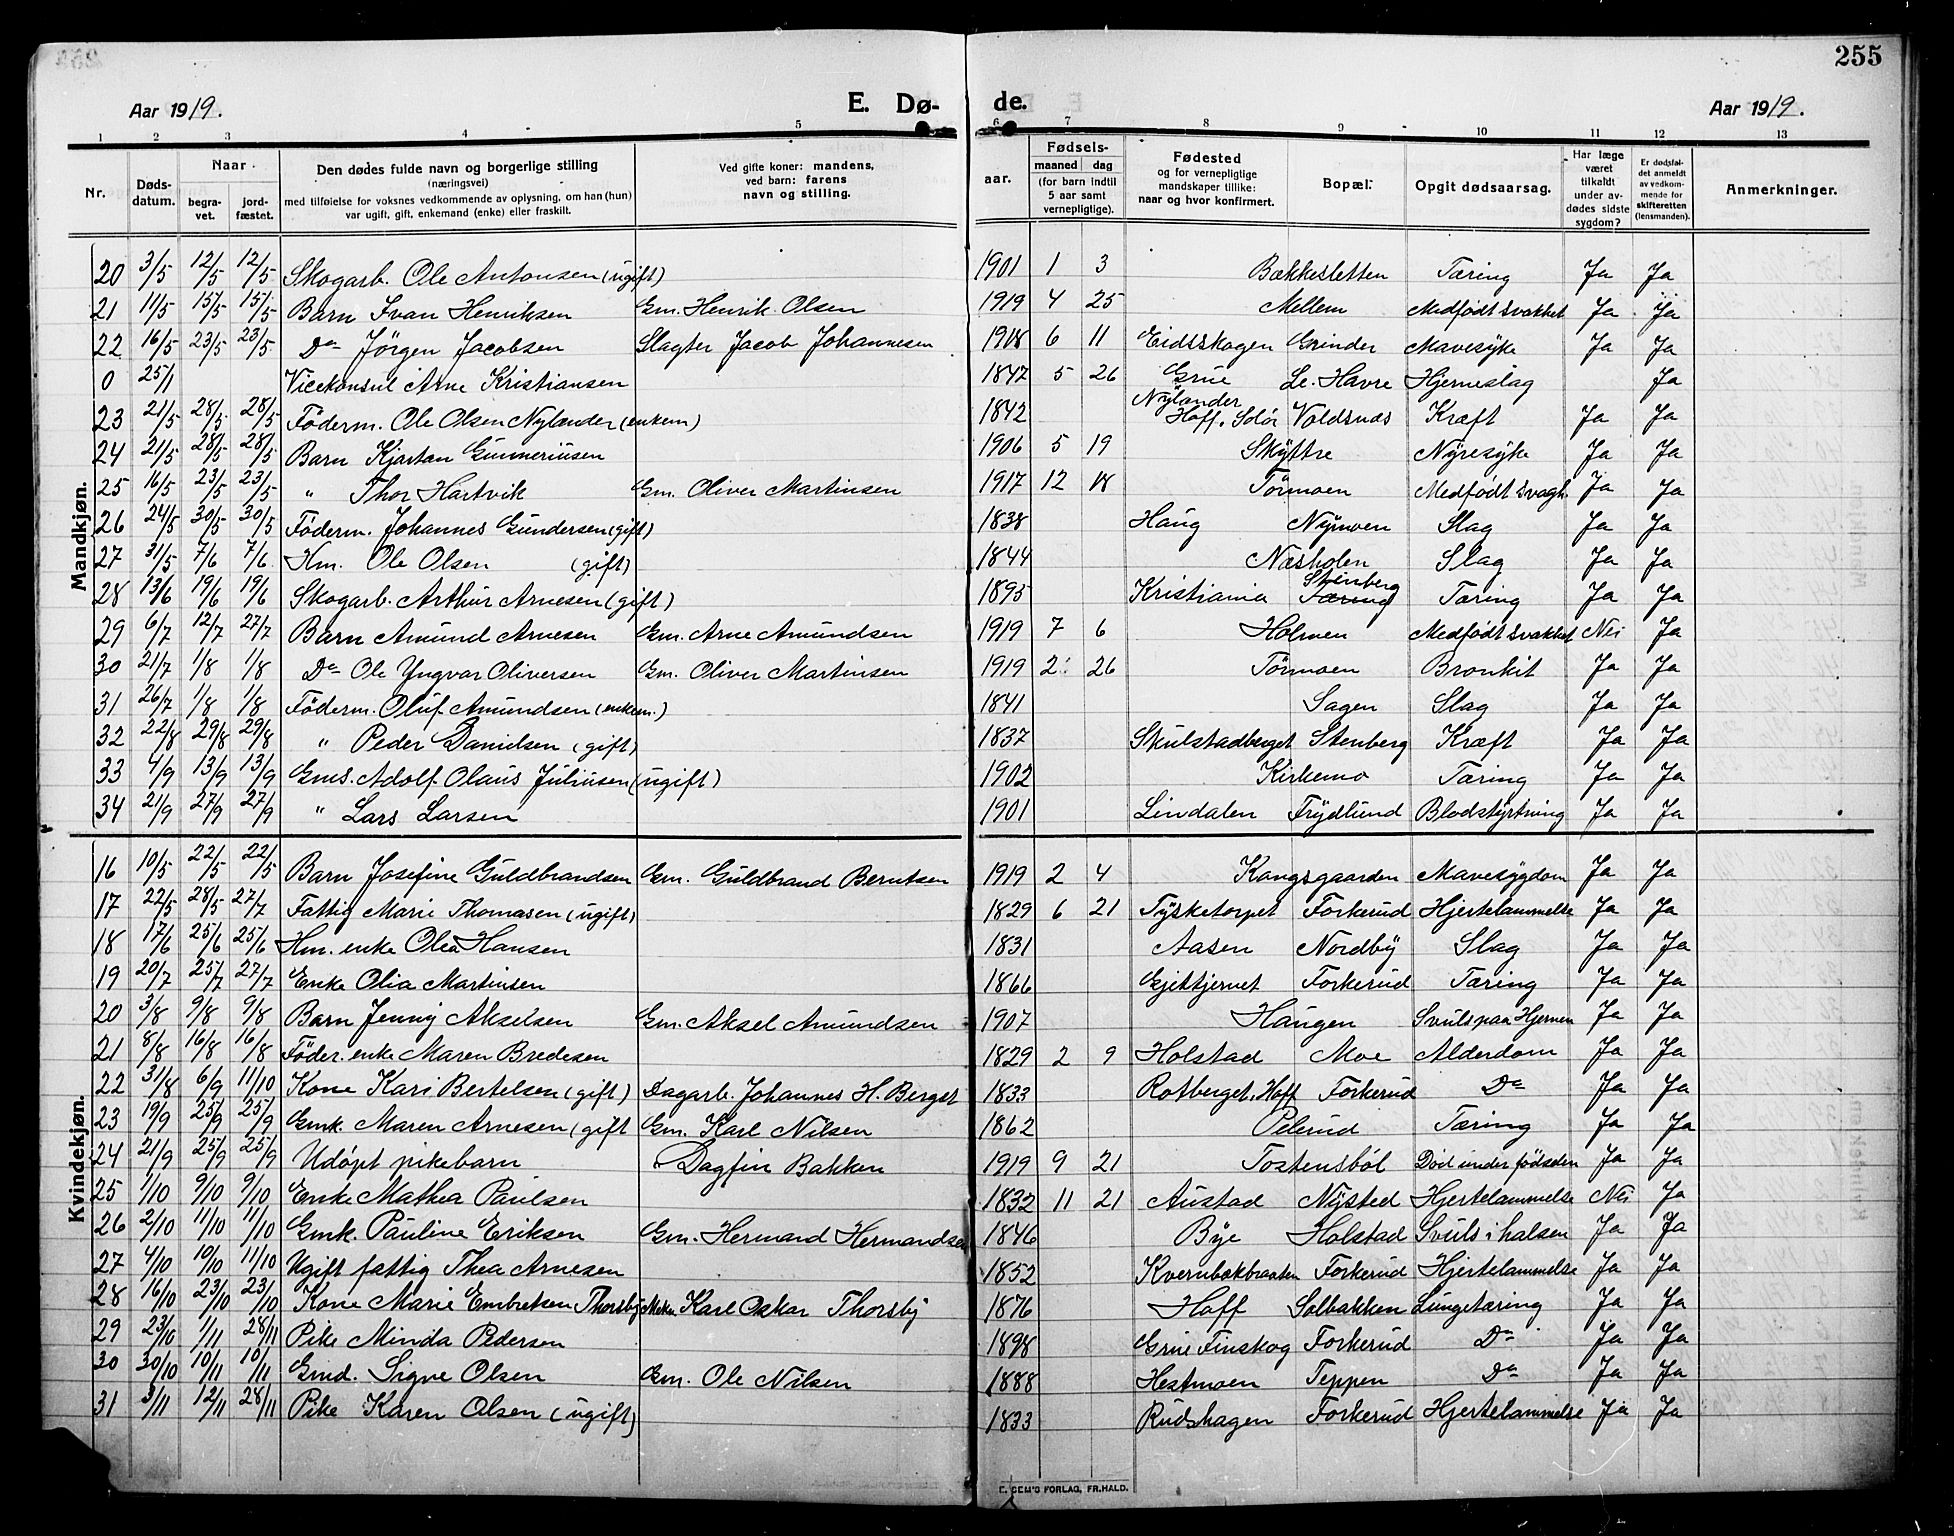 255
Aar 1919. E. Dø- de. Aar 1919.
1 2 3 4 5 6 7 8 9 10 11 12 13
Nr. Døds-datum. Naar begra-vet. jord-fæstet. Den dødes fulde navn og borgerlige stilling (næringsvei) med tilføielse for voksnes vedkommende av oplysning, om han (hun) var ugift, gift, enkemand (enke) eller fraskilt. Ved gifte koner: mandens, ved barn: farens navn og stilling. Fødsels- aar. maaned dag (for barn indtil 5 aar samt vernepligtige). Fødested og for vernepligtige mandskaper tillike: naar og hvor konfirmert. Bopæl. Opgit dødsaarsag. Har læge været tilkaldt under av-dødes sidste sygdom? Er dødsfal-det anmeldt av vedkom-mende for skifteretten (lensmanden). Anmerkninger.
Mandkjøn.
20 3/5 12/5 12/5 Skogarb. Ole Antonsen (ugift) 1901 1 3 Bækkesletten Tæring Ja Ja
21 11/5 15/5 15/5 Barn Ivan Henriksen Gm. Henrik Olsen 1919 4 25 Mellem Medfödt svakhet Ja Ja
22 16/5 23/5 23/5 Do Jörgen Jacobsen Slagter Jacob Johannesen 1918 6 11 Eidsskogen Grinder Mavesyke Ja Ja
0 25/1 Vicekonsul Arne Kristiansen 1847 5 26 Grue Le. Havre Hjerneslag Ja
23 21/5 28/5 28/5 Föderm. Ole Olsen Nylander (enkem) 1842 Nylander Hoff. Solör Voldsnæs Kræft Ja Ja
24 21/5 28/5 28/5 Barn Kjartan Gunneriusen 1906 5 19 Skyttre Nyresyke Ja Ja
25 16/5 23/5 23/5 " Thor Hartvik Gm. Oliver Martinsen 1917 12 18 Törmoen Medfödt svagh. Ja Ja
26 24/5 30/5 30/5 Föderm. Johannes Gundersen (gift) 1838 Haug Nymoen Slag Ja Ja
27 31/5 7/6 7/6 Hm. Ole Olsen (gift) 1844 Næsholen Slag Ja Ja
28 13/6 19/6 19/6 Skogarb. Arthur Arnesen (gift) 1895 Kristiania Tæring Stenberg Tæring Ja Ja
29 6/7 12/7 27/7 Barn Amund Arnesen Gm. Arne Amundsen 1919 7 6 Holmen Medfödt svakhet Nei Ja
30 21/7 1/8 1/8 Do Ole Yngvar Oliversen Gm. Oliver Martinsen 1919 2 26 Törmoen Bronkit Ja Ja
31 26/7 1/8 1/8 Föderm. Oluf Amundsen (enkem.) 1841 Sagen Slag Ja Ja
32 22/8 29/8 29/8 " Peder Danielsen (gift) 1837 Skulstadberget Stenberg Kræft Ja Ja
33 4/9 13/9 13/9 Gms. Adolf Olaus Juliusen (ugift) 1902 Kirkemo Tæring Ja Ja
34 21/9 27/9 27/9 " Lars Larsen 1901 Lindalen Frydlund Blodstyrtning Ja Ja
Kvindekjøn.
16 10/5 22/5 22/5 Barn Josefine Guldbrandsen Gm. Guldbrand Berntsen 1919 2 4 Kongsgaarden Mavesygdom Ja Ja
17 22/5 28/5 27/7 Fattig Marie Thomasen (ugift) 1829 6 21 Tysketorpet Forkerud Hjertelammelse Ja Ja
18 17/6 25/6 25/6 Hm. enke Olea Hansen 1831 Aasen Nordby Slag Ja Ja
19 20/7 25/7 27/7 Enke Olia Martinsen 1866 Gjettjernet Forkerud Tæring Ja Ja
20 3/8 9/8 9/8 Barn Jenny Akselsen Gm. Aksel Amundsen 1907 Haugen Svuls paa Hjernen Ja Ja
21 8/8 16/8 16/8 Föder. enke Maren Bredesen 1829 2 9 Holstad Moe Alderdom Ja Ja
22 31/8 6/9 11/10 Kone Kari Bertelsen (gift) Dagarb. Johannes H. Berget 1833 Rotberget, Hoff Forkerud Do Ja Ja
23 19/9 25/9 25/9 Gmk. Maren Arnesen (gift Gm. Karl Nilsen 1862 Pelerud Tæring Ja Ja
24 21/9 25/9 25/9 Udöpt pikebarn Dagfin Bakken 1919 9 21 Tostensböl Död under födselen Ja Ja
25 1/10 9/10 9/10 Enke Mathea Paulsen 1832 11 21 Austad Nysted Hjertelammelse Nei Ja
26 2/10 11/10 11/10 Gmk. Pauline Eriksen Gm. Hermand Hermandsen 1846 Bye Holstad Svuls i halsen Ja Ja
27 4/10 10/10 11/10 Ugift fattig Thea Arnesen 1852 Kvernbækbraaten Forkerud Hjertelammelse Ja Ja
28 16/10 23/10 23/10 Kone Marie Embretsen Thorsby Karl Oskar Thorsby 1876 Hoff Solbakken Lungetæring Ja Ja
29 23/10 1/11 28/11 Pike Minda Pedersen 1898 Grue Finskog Forkerud Do Ja Ja
30 30/10 10/11 10/11 Gmd. Signe Olsen Gm. Ole Nilsen 1888 Hestmoen Teppen Do Ja Ja
31 3/11 12/11 28/11 Pike Karen Olsen (ugift) 1833 Rudshagen Forkerud Hjertelammelse Ja Ja
E. SEM'S FORLAG, FR.HALD.